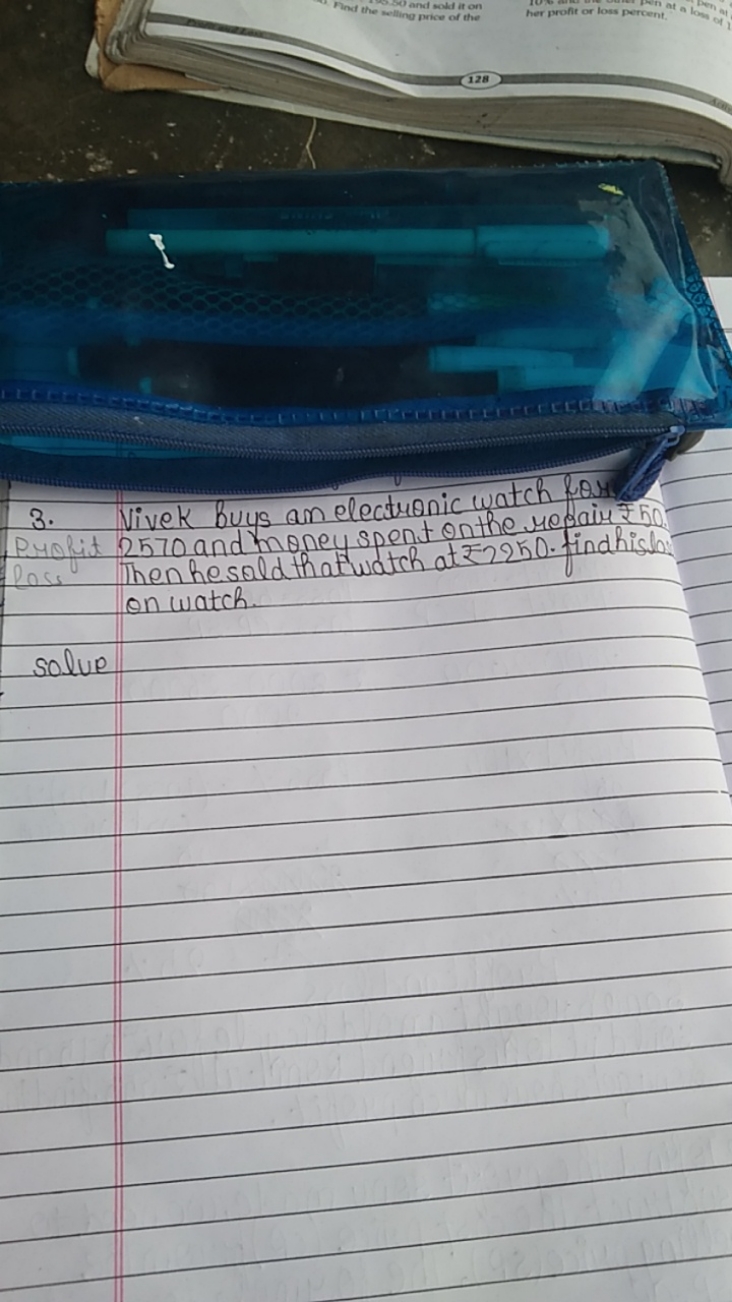 Find the selling price of the
and sold it on
her profit or loss percent.
pen at a loss of
128
3. Vivek buys an electronic watch for
Profit 2570 and money spent on the repair ₹50.
loss Then he sold that watch at ₹2250. find his
on watch.
solve